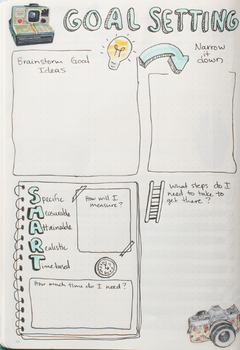 GOAL SETTING
Brainstorm Goal
Ideas
Narrow
it
down
SMART
Specific
Measurable
Attainable
Realistic
Timebased
How will I
measure?
What steps do I
need to take to
get there?
How much time do I need?